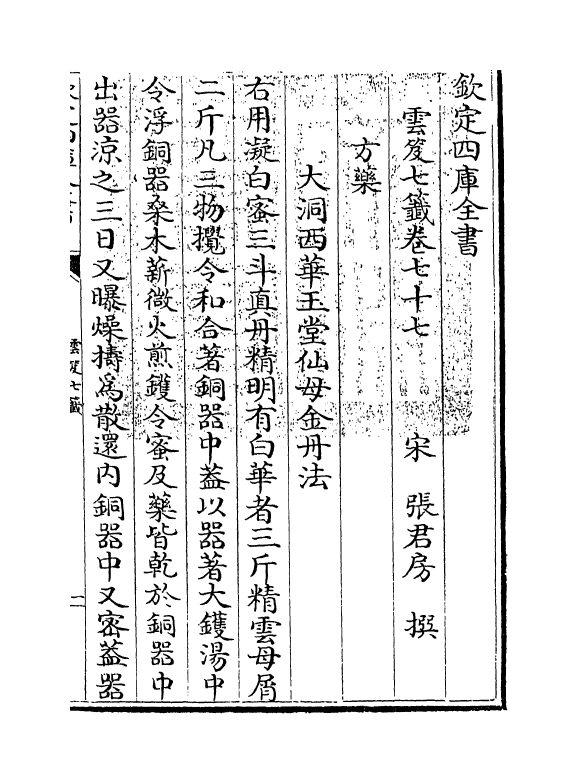 欽定四庫全書
雲笈七籤卷七十七　宋　張君房　撰
方藥
大洞西華玉堂仙母金丹法
右用凝白蜜三斗真丹精明有白華者三斤精雲母屑
二斤凡三物攪令和合著銅器中蓋以器著大鑊湯中
令浮銅器桑木薪微火煎鑊令蜜及藥皆乾於銅器中
出器涼之三日又曝燥擣為散還内銅器中又密蓋器
雲笈七籤